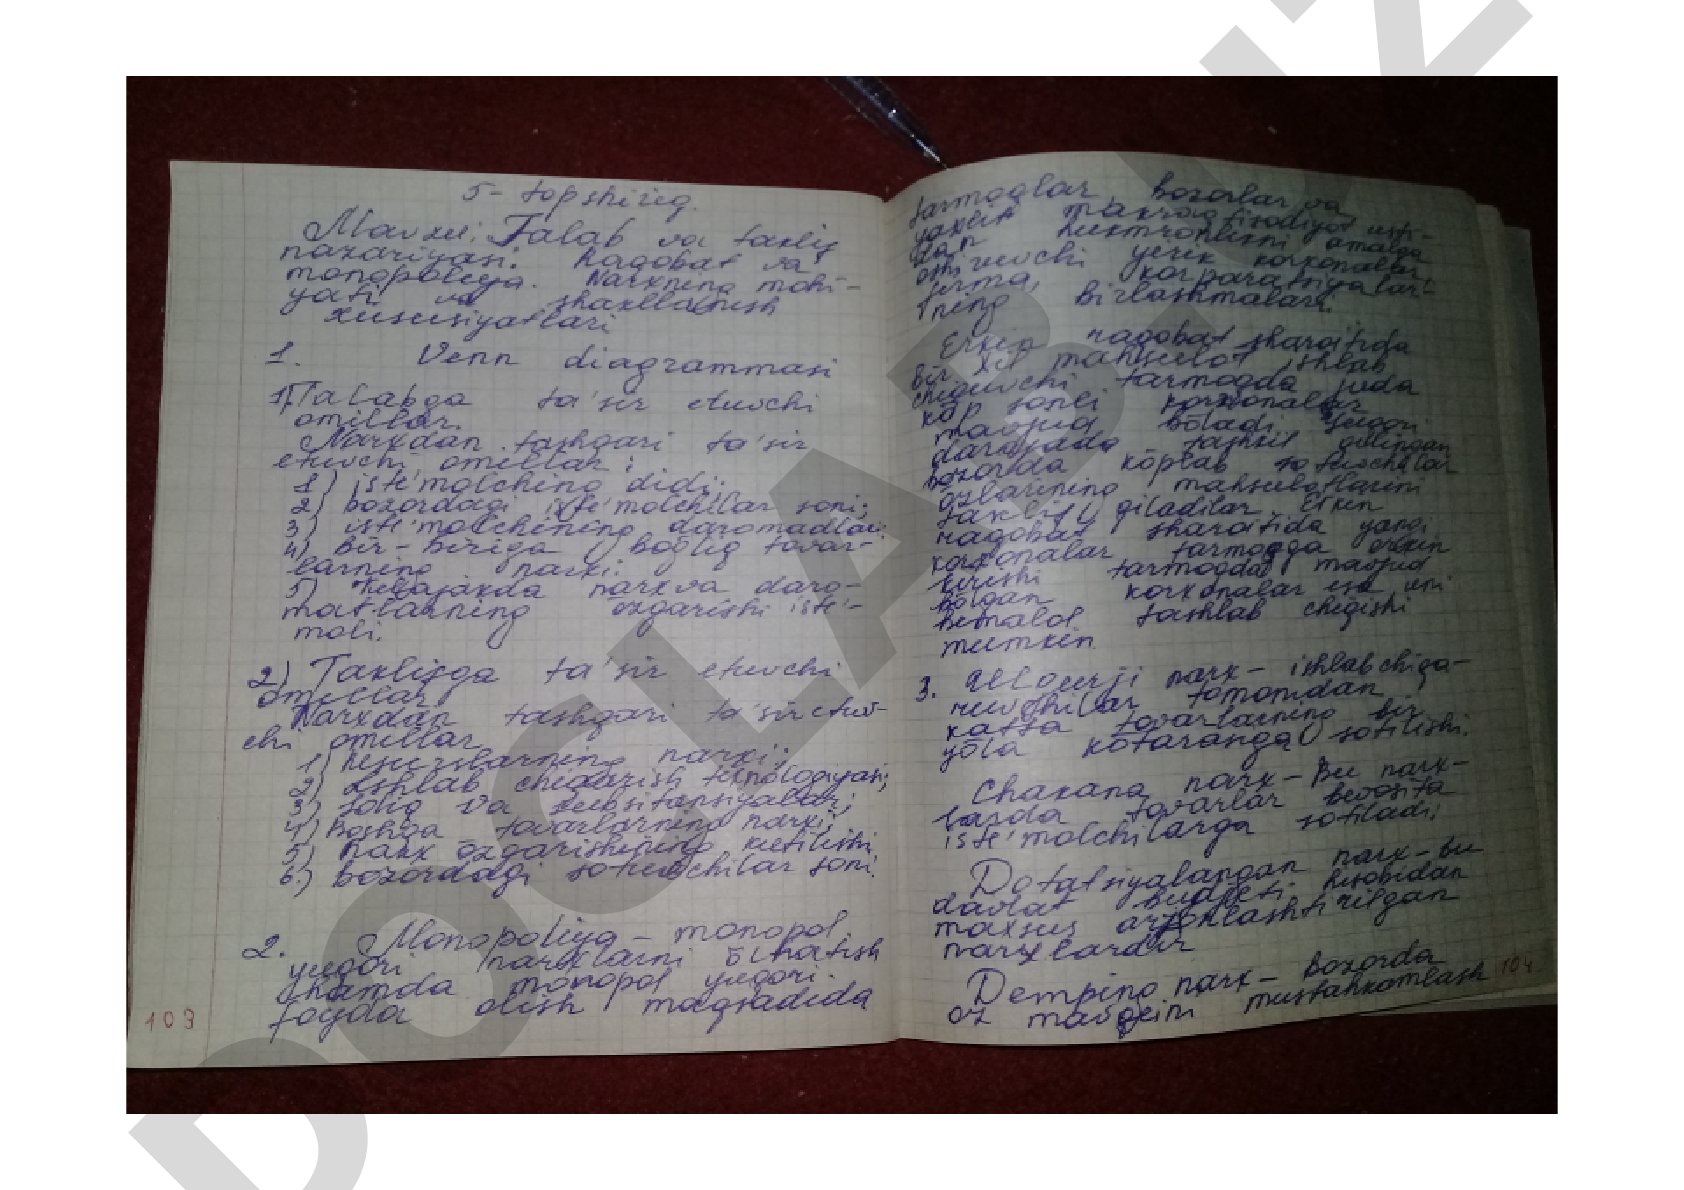 5- topshiriq.
Mavzu: Talab va taklif
nazariyasi. Raqobat va
monopoliya. Narxning mohi-
yati va shakllanish
xususiyatlari
1. Venn diagrammasi
1) Talabga ta'sir etuvchi
omillar.
Narxdan tashqari ta'sir
etuvchi omillar:
1) iste'molching didi;
2) bozordagi iste'molchilar soni;
3) iste'molchining daromadlari;
4) Bir-biriga bog'liq tovar-
larning narxi.
5) Kelajakda narx va daro-
matlarning ozgarishi iste'-
moli.
2) Taklifga ta'sir etuvchi
omillar
Narxdan tashqari ta'sir etuv-
chi omillar
1) Resurslarning narxi;
2) Ishlab chiqarish texnologiyasi;
3) Soliq va subsitansiyalar;
4) Boshqa tovarlarning narxi;
5) Narx ozgarishining kutilishi
6.) bozordagi sotuvchilar soni.
2. Monopoliya - monopol
yuqori narxlarni o'rnatish
hamda monopol yuqori
foyda olish maqsadida
103
tarmoqlar, bozorlar va
yaxlit makroiqtisodiyot usti-
dan hukmronlikni amalga
oshiruvchi yirik korxonalar
firma, korparatsiyalar-
ning birlashmalari.
Erkin raqobat sharoitida
bir xil mahsulot ishlab
chiquvchi tarmoqda juda
ko'p sonli korxonalar
mavjud bo'ladi yuqori
darajada tashkil qilingan
bozorda ko'plab sotuvchilar
ozlarining mahsulotlarini
taklif qiladilar. Erkin
raqobat sharoitida yangi
korxonalar tarmoqqa erkin
kirishi tarmoqda mavjud
bo'lgan korxonalar esa uni
bemalol tashlab chiqishi
mumkin.
3. Ulgurji narx - ishlab chiqa-
ruvchilar tomonidan
katta tovarlarning bir
yo'la ko'tarasiga sotilishi.
Chakana narx - Bu narx-
larda tovarlar bevosita
iste'molchilarga sotiladi
Dotatsiyalangan narx - bu
davlat budjeti hisobidan
maxsus arzonlashtirilgan
narxlardir
Demping narx - Bozorda
oz mavqeini mustahkamlash
104